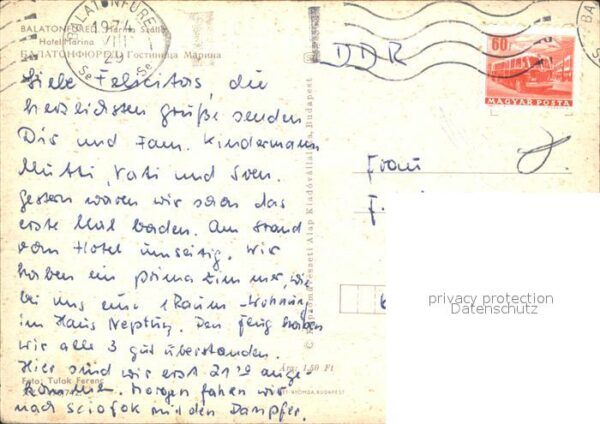 BALATONFÜRED
1974
VIII
29
BALATONFÜRED. Marina Szálló
Hotel Marina
БАЛАТОНФЮРЕД Гостиница Марина
DDR
60f
MAGYAR POSTA
Liebe Felicitas, die
herzlichsten Grüße senden
Dir und Fam. Kindermann
Mutti, Vati und Sven.
Gestern waren wir schon das
erste Mal baden. Am Strand
vom Hotel umseitig. Wir
haben ein prima Zimmer, wie
bei uns eine 1 Raum-Wohnung
im Haus Neptun. Den Flug haben
wir alle 3 gut überstanden.
Hier sind wir erst 21 30 ange-
kommen. Morgen fahren wir
nach Sciofok mit den Dampfer.
Frau
F.
6
© Képzőművészeti Alap Kiadóvállalata, Budapest
Ára: 1,50 Ft
Foto: Tulok Ferenc
privacy protection
Datenschutz